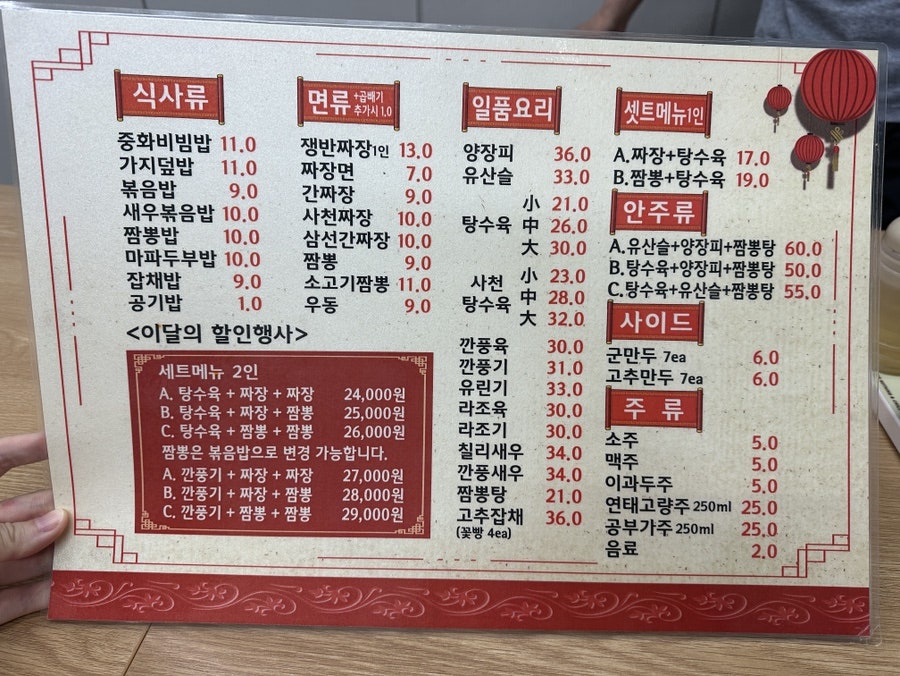 식사류
중화비빔밥 11.0
가지덮밥 11.0
볶음밥 9.0
새우볶음밥 10.0
짬뽕밥 10.0
마파두부밥 10.0
잡채밥 9.0
공기밥 1.0
면류 +곱빼기 추가시 1.0
쟁반짜장1인 13.0
짜장면 7.0
간짜장 9.0
사천짜장 10.0
삼선간짜장 10.0
짬뽕 9.0
소고기짬뽕 11.0
우동 9.0
<이달의 할인행사>
세트메뉴 2인
A. 탕수육 + 짜장 + 짜장 24,000원
B. 탕수육 + 짜장 + 짬뽕 25,000원
C. 탕수육 + 짬뽕 + 짬뽕 26,000원
짬뽕은 볶음밥으로 변경 가능합니다.
A. 깐풍기 + 짜장 + 짜장 27,000원
B. 깐풍기 + 짜장 + 짬뽕 28,000원
C. 깐풍기 + 짬뽕 + 짬뽕 29,000원
일품요리
양장피 36.0
유산슬 33.0
小 21.0
탕수육 中 26.0
大 30.0
小 23.0
사천 탕수육 中 28.0
大 32.0
깐풍육 30.0
깐풍기 31.0
유린기 33.0
라조육 30.0
라조기 30.0
칠리새우 34.0
깐풍새우 34.0
짬뽕탕 21.0
고추잡채 36.0
(꽃빵 4ea)
셋트메뉴1인
A.짜장+탕수육 17.0
B.짬뽕+탕수육 19.0
안주류
A.유산슬+양장피+짬뽕탕 60.0
B.탕수육+양장피+짬뽕탕 50.0
C.탕수육+유산슬+짬뽕탕 55.0
사이드
군만두 7ea 6.0
고추만두 7ea 6.0
주 류
소주 5.0
맥주 5.0
이과두주 5.0
연태고량주 250ml 25.0
공부가주 250ml 25.0
음료 2.0